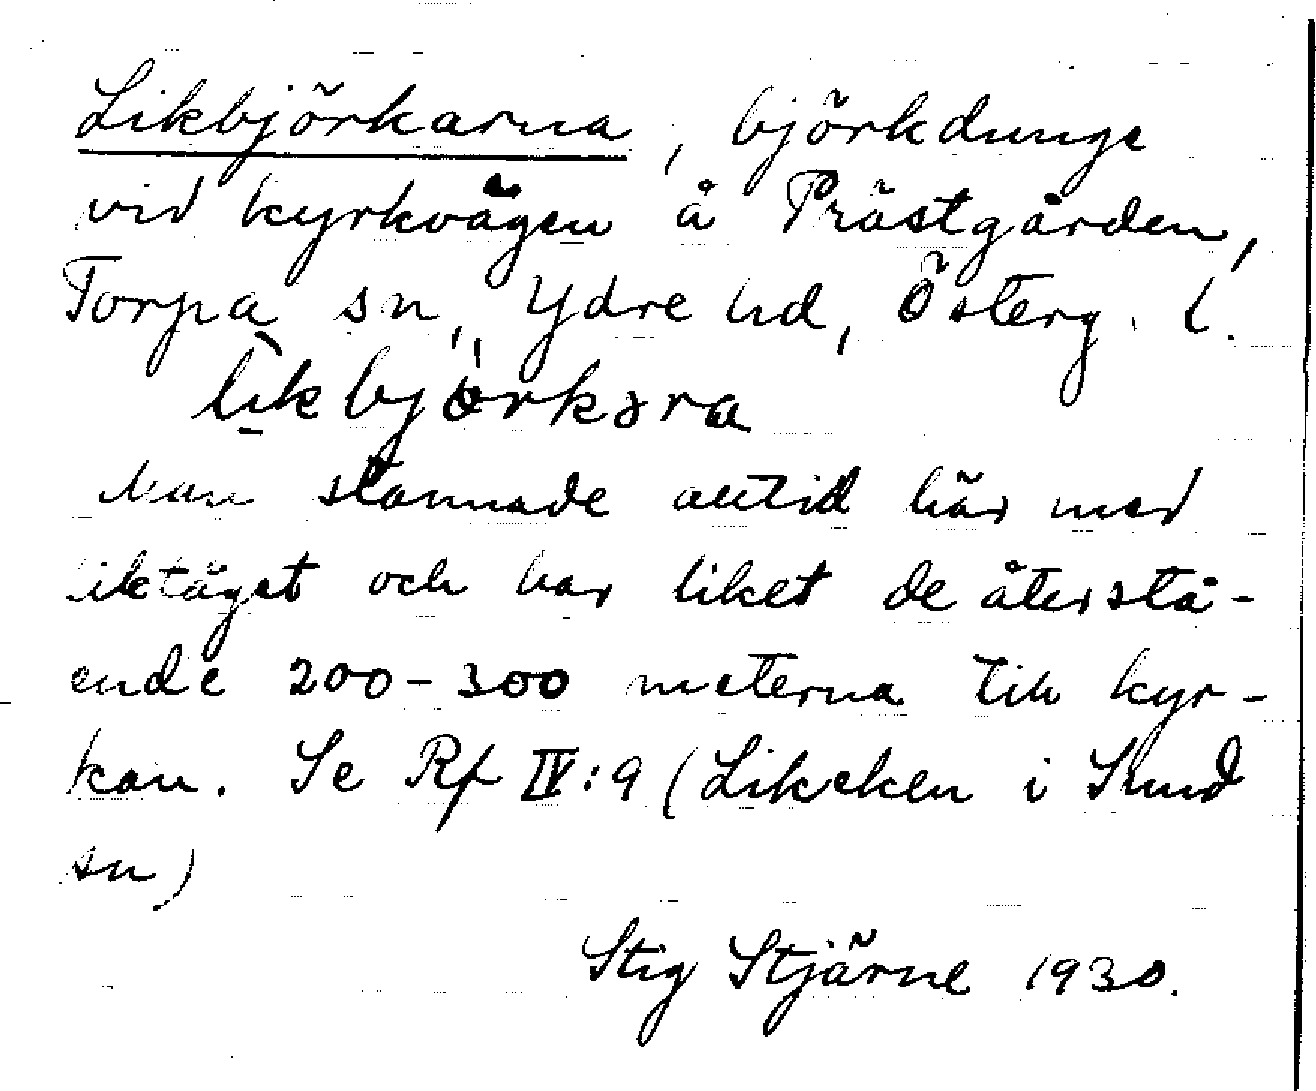 Likbjörkarna, björkdunge
vid kyrkvägen å Prästgården,
Torpa sn, Ydre hd, Österg. l.
likbjörkəra
Man stannade alltid här med
liktåget och bar liket de återstå-
ende 200-300 meterna till kyr-
kan. Se Rf IV:9 (Likeken i Sund
sn)
Stig Stjärne 1930.